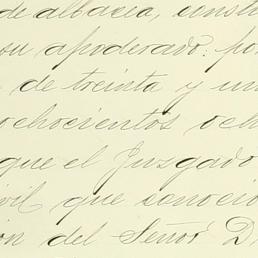 de albacea, const
su apoderado. por
de treinta y un
ochocientos och
que el Juzgado
ivil que conoció
ón del Señor D